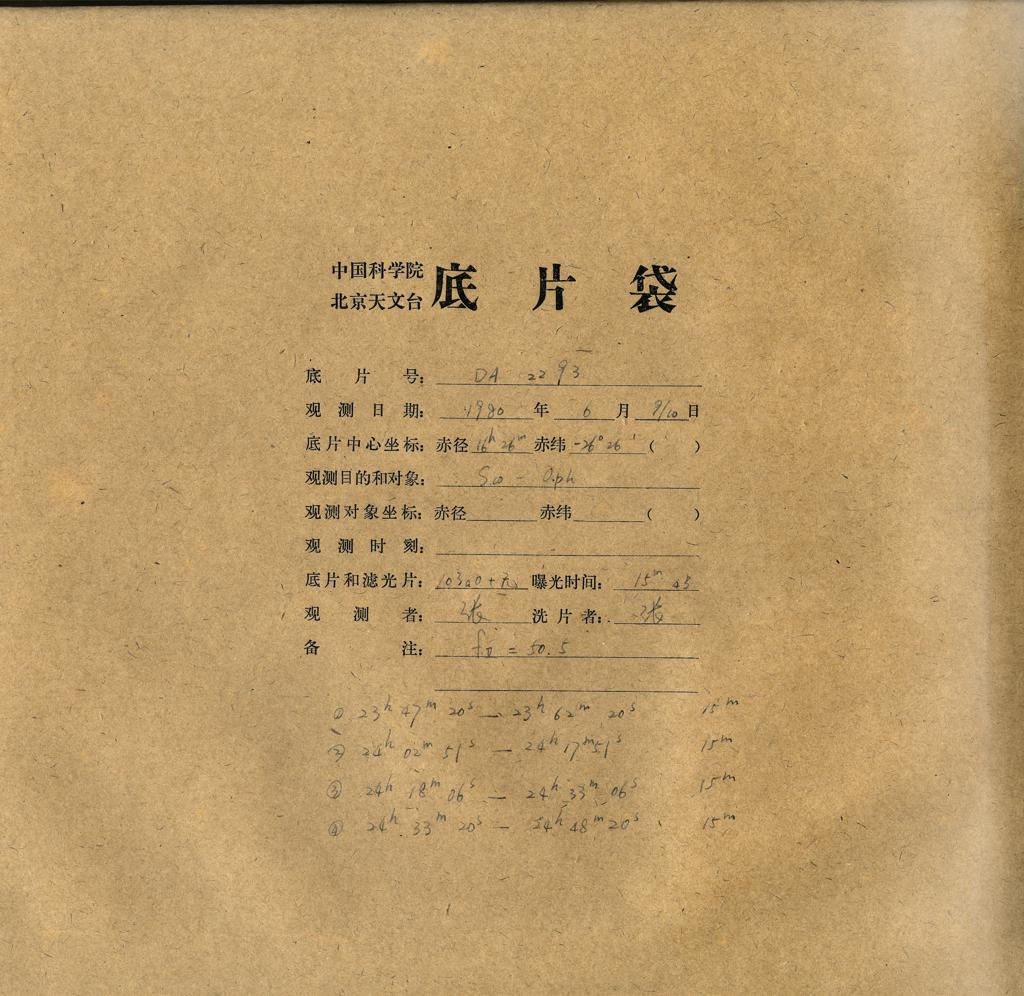 中国科学院
北京天文台 底片袋
底片号: DA 2293
观测日期: 1980 年 6 月 9/10 日
底片中心坐标: 赤径 16h 26m 赤纬 -26° 26' ( )
观测目的和对象: Sco - Oph
观测对象坐标: 赤径 赤纬 ( )
观测时刻:
底片和滤光片: 103aO+无 曝光时间: 15m
观测者: 张 洗片者: 张
备注: = 50.5
① 23h 47m 20s — 23h 62m 20s 15m
② 24h 02m 51s — 24h 17m 51s 15m
③ 24h 18m 06s — 24h 33m 06s 15m
④ 24h 33m 20s — 24h 48m 20s 15m